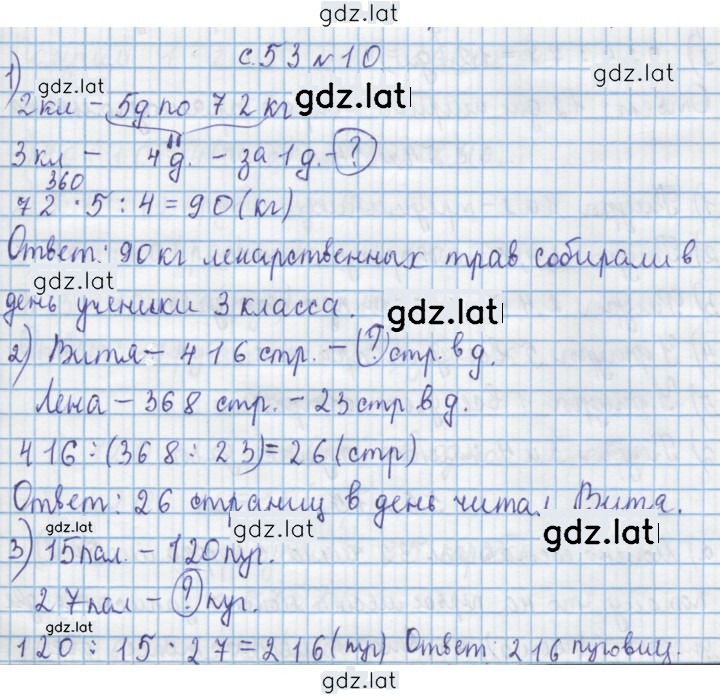 gdz.lat
с.53 №10
gdz.lat
1)
gdz.lat
2 кл - 5д. по 72 кг
gdz.lat
3 кл - 4д. - за 1 д. - ?
360
72 · 5 : 4 = 90 (кг)
Ответ: 90 кг лекарственных трав собирали в
gdz.lat
день ученики 3 класса.
gdz.lat
2) Витя - 416 стр. - ? стр. в д.
Лена - 368 стр. - 23 стр в д.
416 : (368 : 23) = 26 (стр)
Ответ: 26 страниц в день читал Витя.
gdz.lat
gdz.lat
3) 15 пал. - 120 пуг.
27 пал - ? пуг.
gdz.lat
120 : 15 · 27 = 216 (пуг) Ответ: 216 пуговиц.
gdz.lat